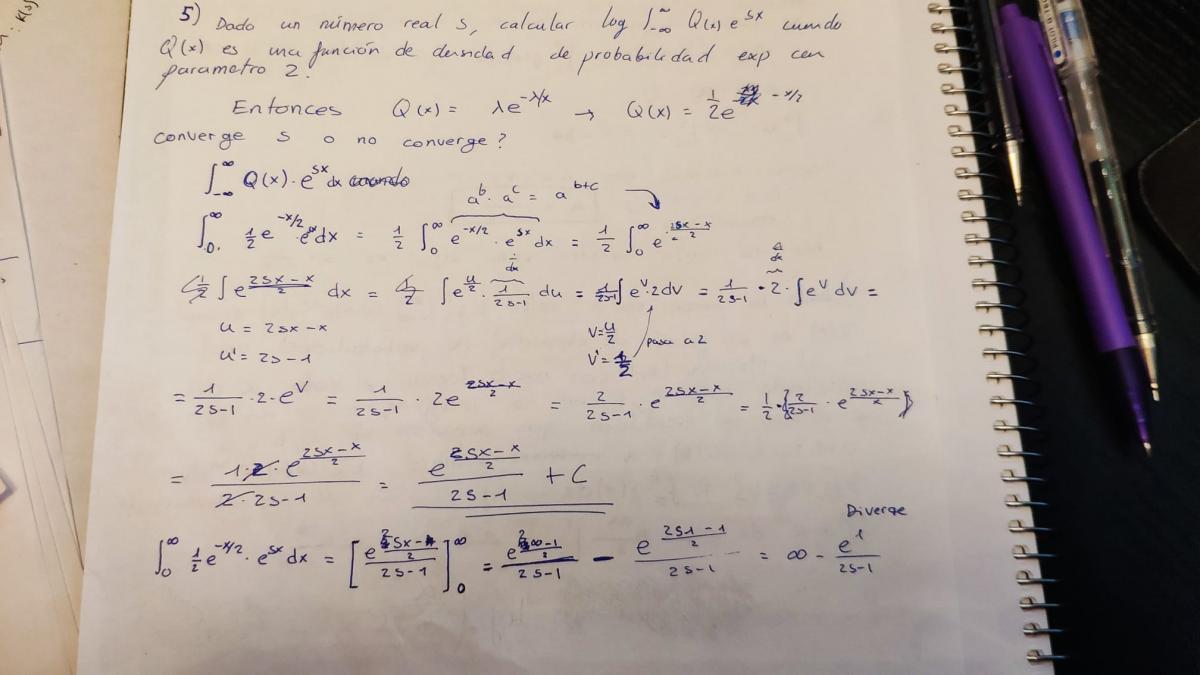 5) Dado un número real s, calcular log ∫_{-∞}^{∞} Q(x) e^{sx} cuando
Q(x) es una función de densidad de probabilidad exp con
parametro 2.
Entonces Q(x) = λe^{-λ/x} → Q(x) = 1/2 e^{-x/2}
converge s o no converge?
∫_{-∞}^{∞} Q(x) · e^{sx} dx
a^b · a^c = a^{b+c}
∫_0^∞ 1/2 e^{-x/2} · e^{sx} dx = 1/2 ∫_0^∞ e^{-x/2} · e^{sx} dx = 1/2 ∫_0^∞ e^{(2sx-x)/2}
1/2 ∫ e^{(2sx-x)/2} dx = 1/2 ∫ e^{u/2} · 1/(2s-1) du = 1/(2s-1) ∫ e^v · 2dv = 1/(2s-1) · 2 · ∫ e^v dv =
u = 2sx-x v = u/2 pasa a 2
u' = 2s-1 v' = 1/2
= 1/(2s-1) · 2 · e^v = 1/(2s-1) · 2e^{(2sx-x)/2} = 2/(2s-1) · e^{(2sx-x)/2} = 1/2 · {2/(2s-1) · e^{(2sx-x)/2}}
= (1·2·e^{(2sx-x)/2})/(2·2s-1) = e^{(2sx-x)/2}/(2s-1) + C
Diverge
∫_0^∞ 1/2 e^{-x/2} · e^{sx} dx = [e^{(2sx-x)/2}/(2s-1)]_0^∞ = e^{(2s∞-1)/2}/(2s-1) - e^{(2s1-1)/2}/(2s-1) = ∞ - e^1/(2s-1)
PILOT